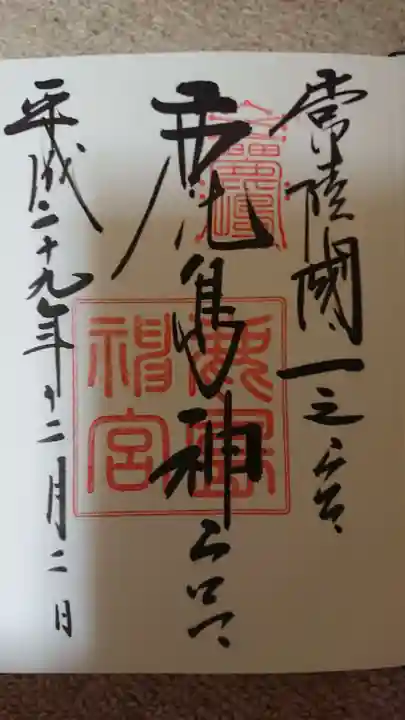 常陸國一之宮
鹿島神宮
平成二十九年十二月二日
鹿島神宮